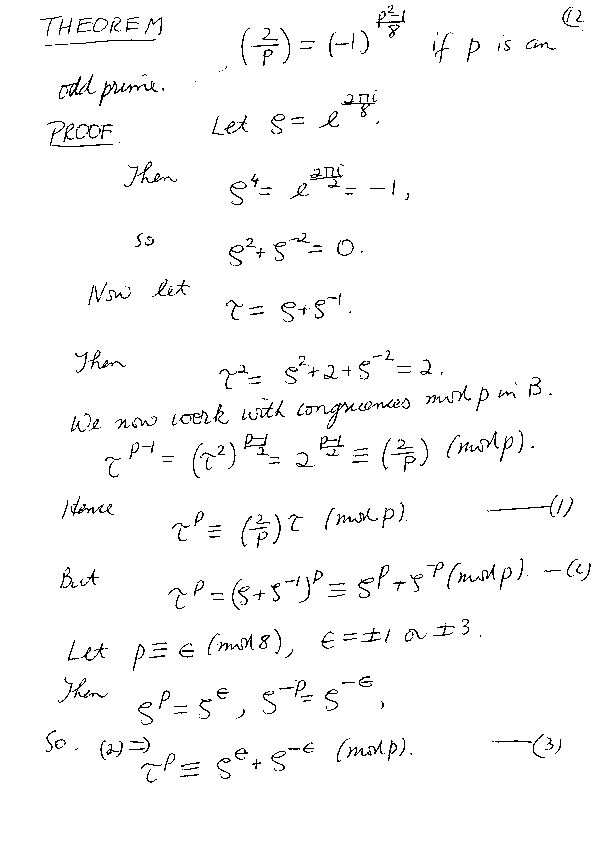 12
THEOREM (2/p) = (-1)^{(p²-1)/8} if p is an
odd prime.
PROOF. Let ζ = e^{2πi/8}.
Then ζ⁴ = e^{2πi/2} = -1,
so ζ² + ζ⁻² = 0.
Now let τ = ζ + ζ⁻¹.
Then τ² = ζ² + 2 + ζ⁻² = 2.
We now work with congruences mod p in B.
τ^{p-1} = (τ²)^{(p-1)/2} = 2^{(p-1)/2} ≡ (2/p) (mod p).
Hence τ^p ≡ (2/p) τ (mod p). —(1)
But τ^p = (ζ + ζ⁻¹)^p ≡ ζ^p + ζ^{-p} (mod p). —(2)
Let p ≡ ε (mod 8), ε = ±1 or ±3.
Then ζ^p = ζ^ε, ζ^{-p} = ζ^{-ε},
So. (2) ⇒ τ^p ≡ ζ^ε + ζ^{-ε} (mod p). —(3)